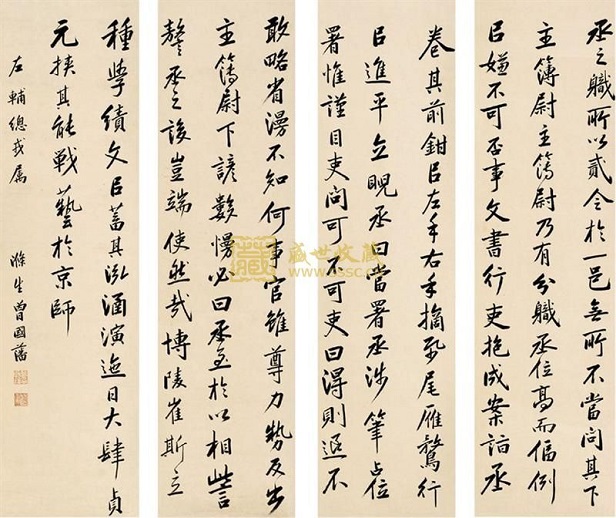 丞之職所以貳令於一邑無所不當問其下
主簿尉主簿尉乃有分職丞位高而偪例
㠯嫌不可否事文書行吏抱成案詣丞
卷其前鉗㠯左手右手摘紙尾雁鶩行
㠯進平立睨丞曰當署丞涉筆占位
署惟謹目吏問可不可吏曰得則退不
敢略省漫不知何事官雖尊力勢反出
主簿尉下諺數慢必曰丞至於以相訾
謷丞之設豈端使然哉博陵崔斯立
種學績文㠯蓄其泓涵演迤日大肆貞
元挾其能戰藝於京師
左輔總戎屬
滌生曾國藩
盛世收藏